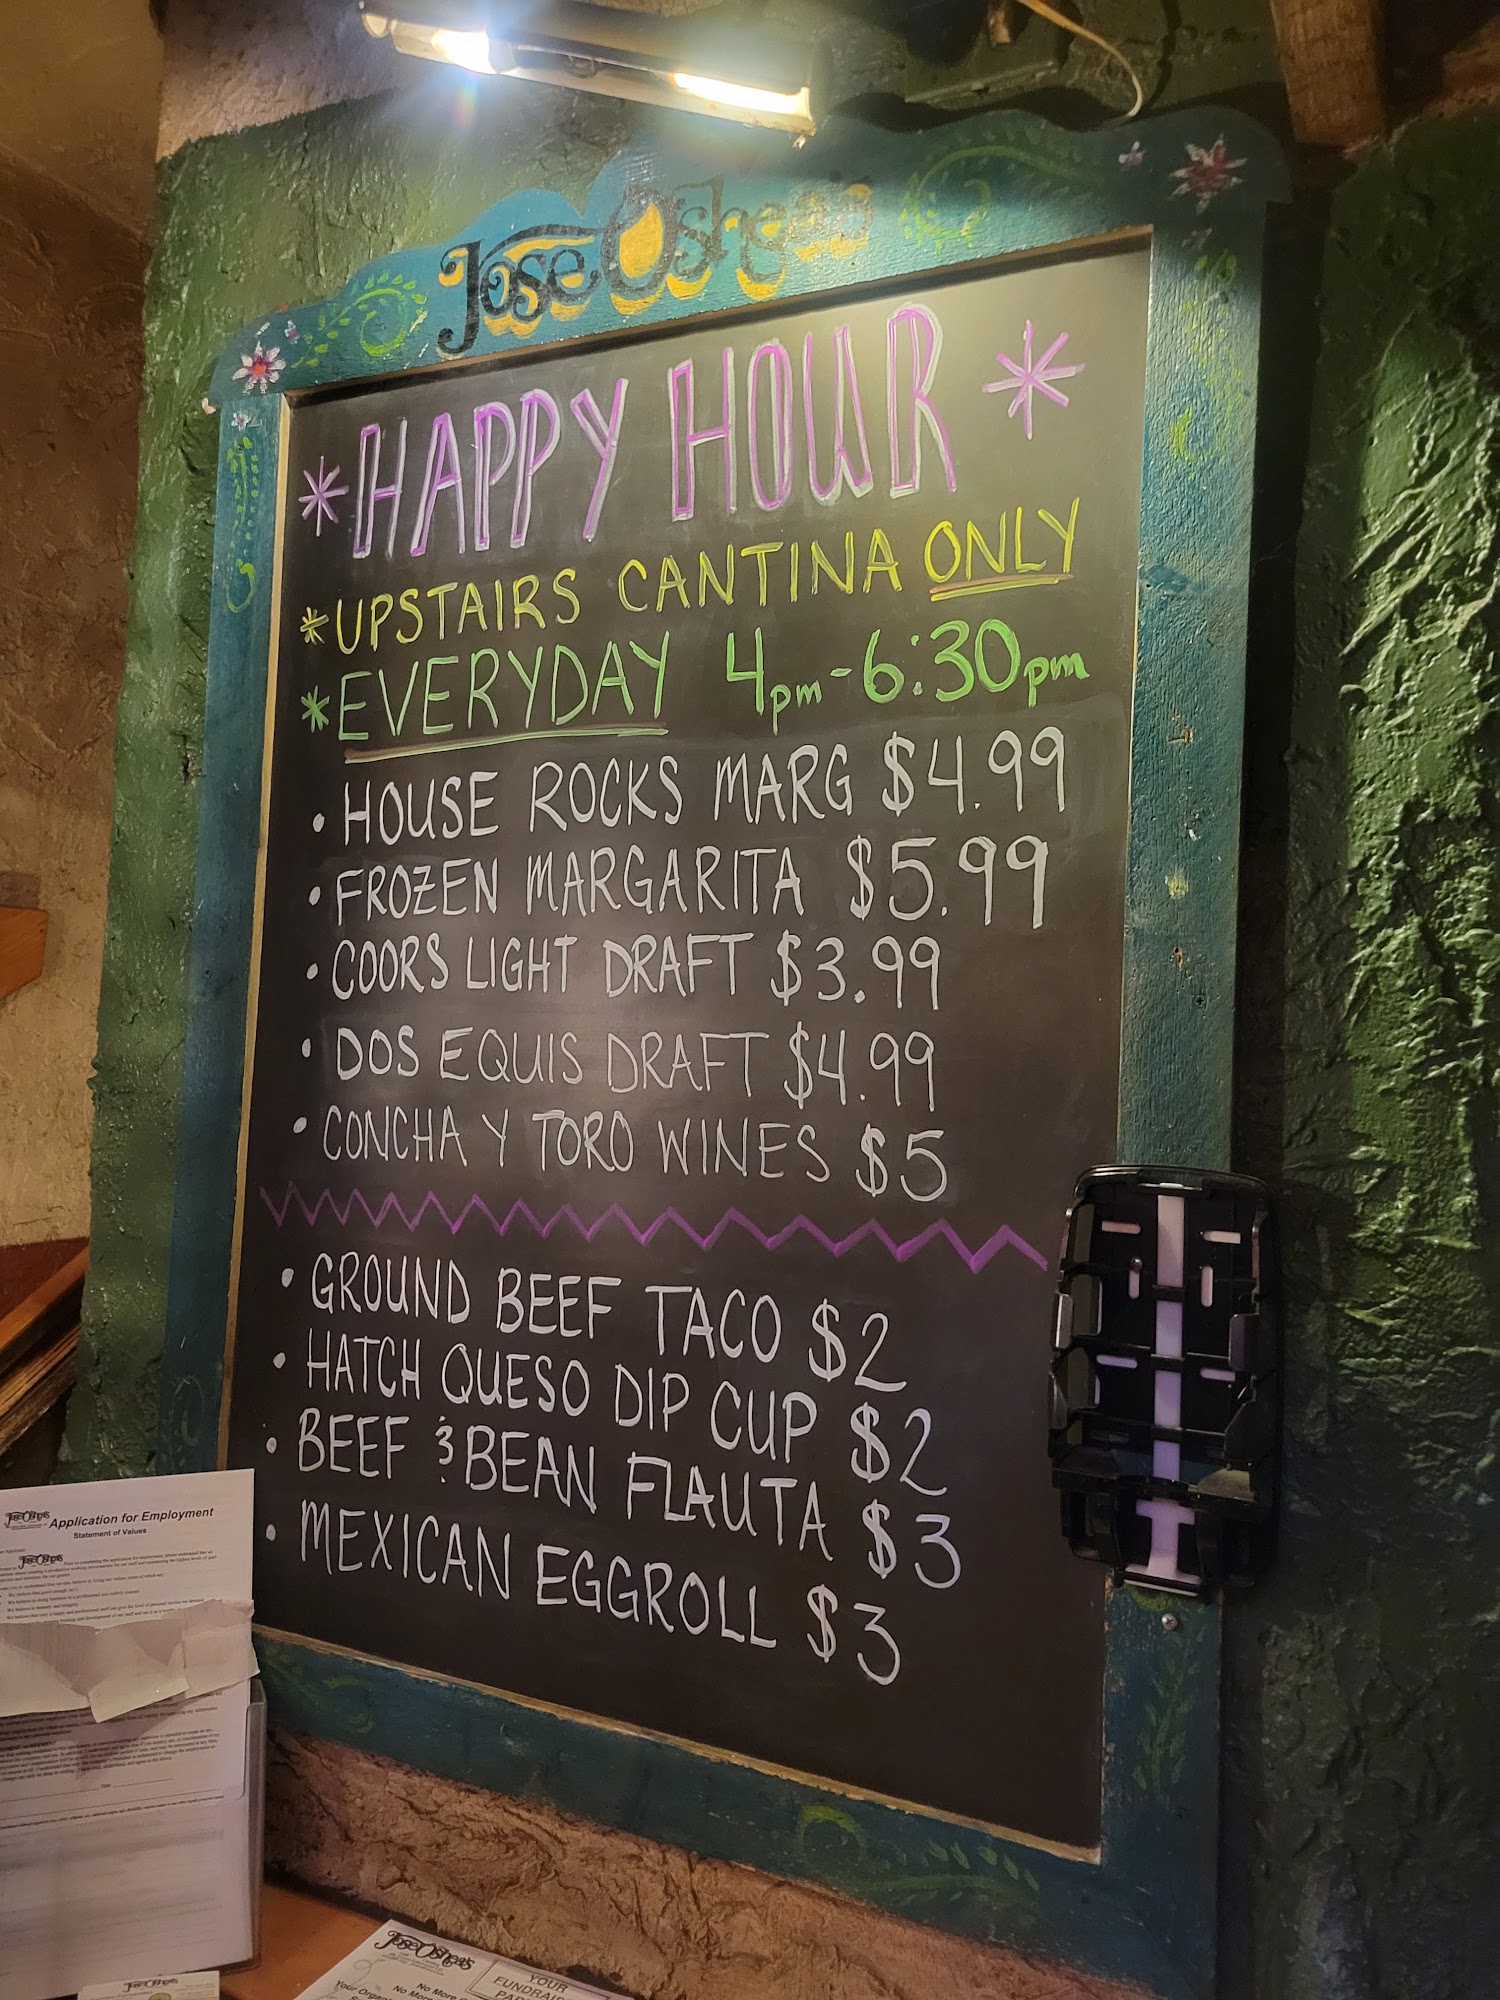 Jose O'Shea's
* HAPPY HOUR *
* UPSTAIRS CANTINA ONLY
* EVERYDAY 4pm-6:30pm
• HOUSE ROCKS MARG $4.99
• FROZEN MARGARITA $5.99
• COORS LIGHT DRAFT $3.99
• DOS EQUIS DRAFT $4.99
• CONCHA Y TORO WINES $5
• GROUND BEEF TACO $2
• HATCH QUESO DIP CUP $2
• BEEF & BEAN FLAUTA $3
• MEXICAN EGGROLL $3
Jose O'Shea's Application for Employment
Statement of Values
Jose O'Shea's
Jose O'Shea's
YOUR
No More
FUNDRAIS
Your Organ
No More
Jose O'Shea's